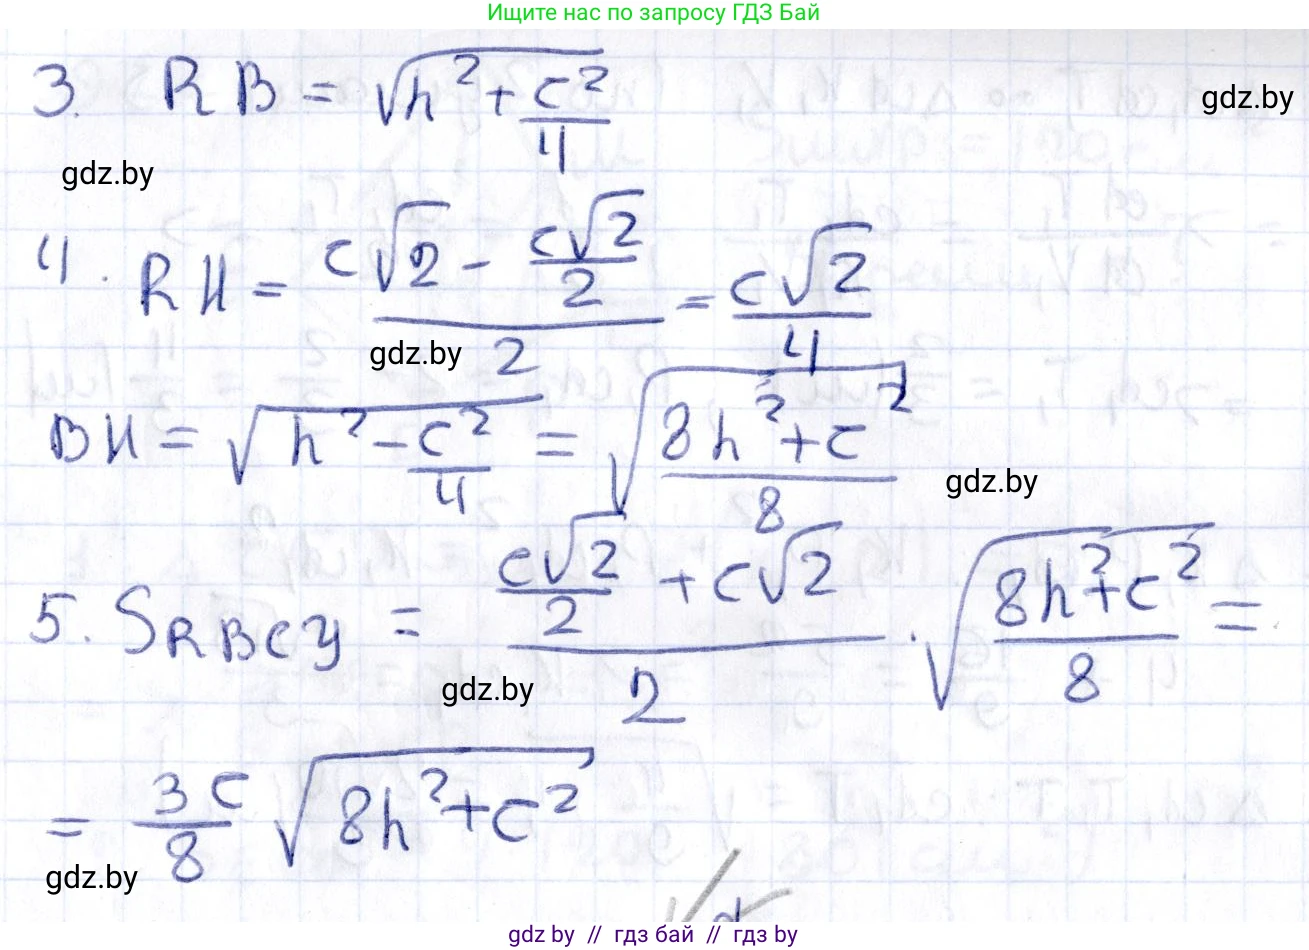 Ищите нас по запросу ГДЗ Бай
3. RB = √(h² + c²/4)
gdz.by
gdz.by
4. RH = (c√2 - c√2/2)/2 = c√2/4
gdz.by
BH = √(h² - c²/4) = √((8h² + c²)/8)
gdz.by
5. S RBCY = (c√2/2 + c√2)/2 · √((8h² + c²)/8) =
gdz.by
= 3c/8 √(8h² + c²)
gdz.by
gdz.by // гдз бай // гдз by